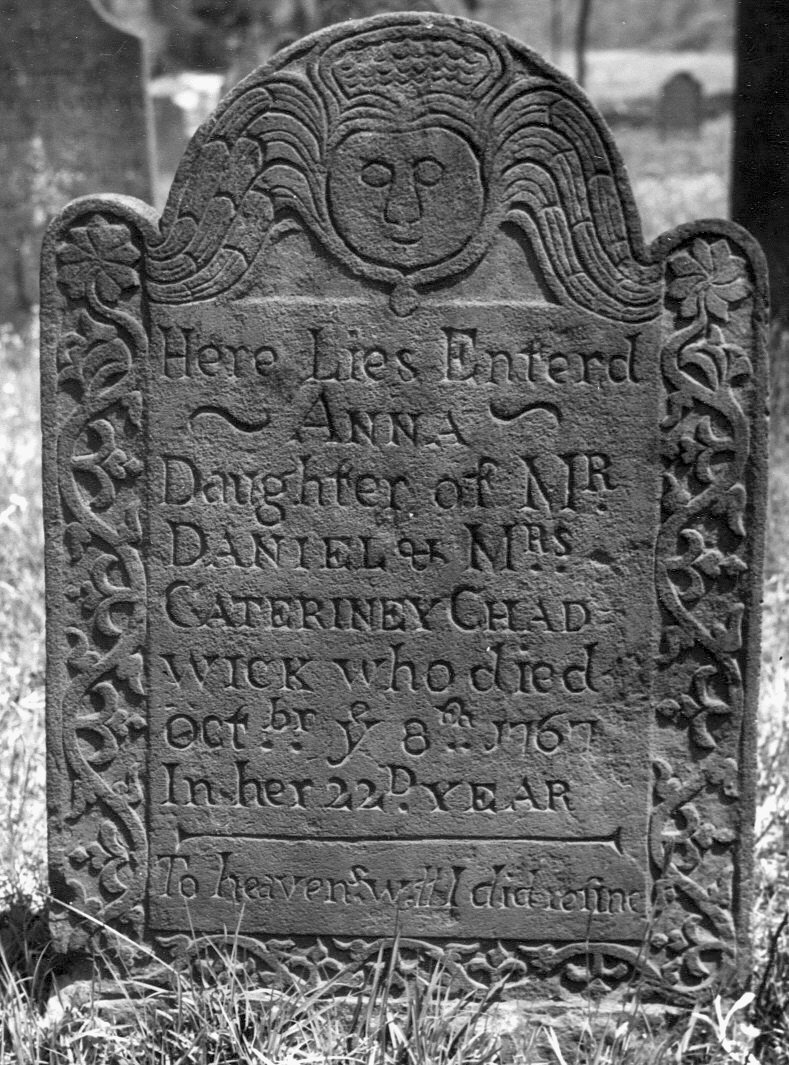 Here Lies Enterd
ANNA
Daughter of MR.
DANIEL & MRS.
CATERINEY CHAD
WICK who died
OCT.br ye 8th 1767
In her 22D. YEAR
To heavens will I did resine